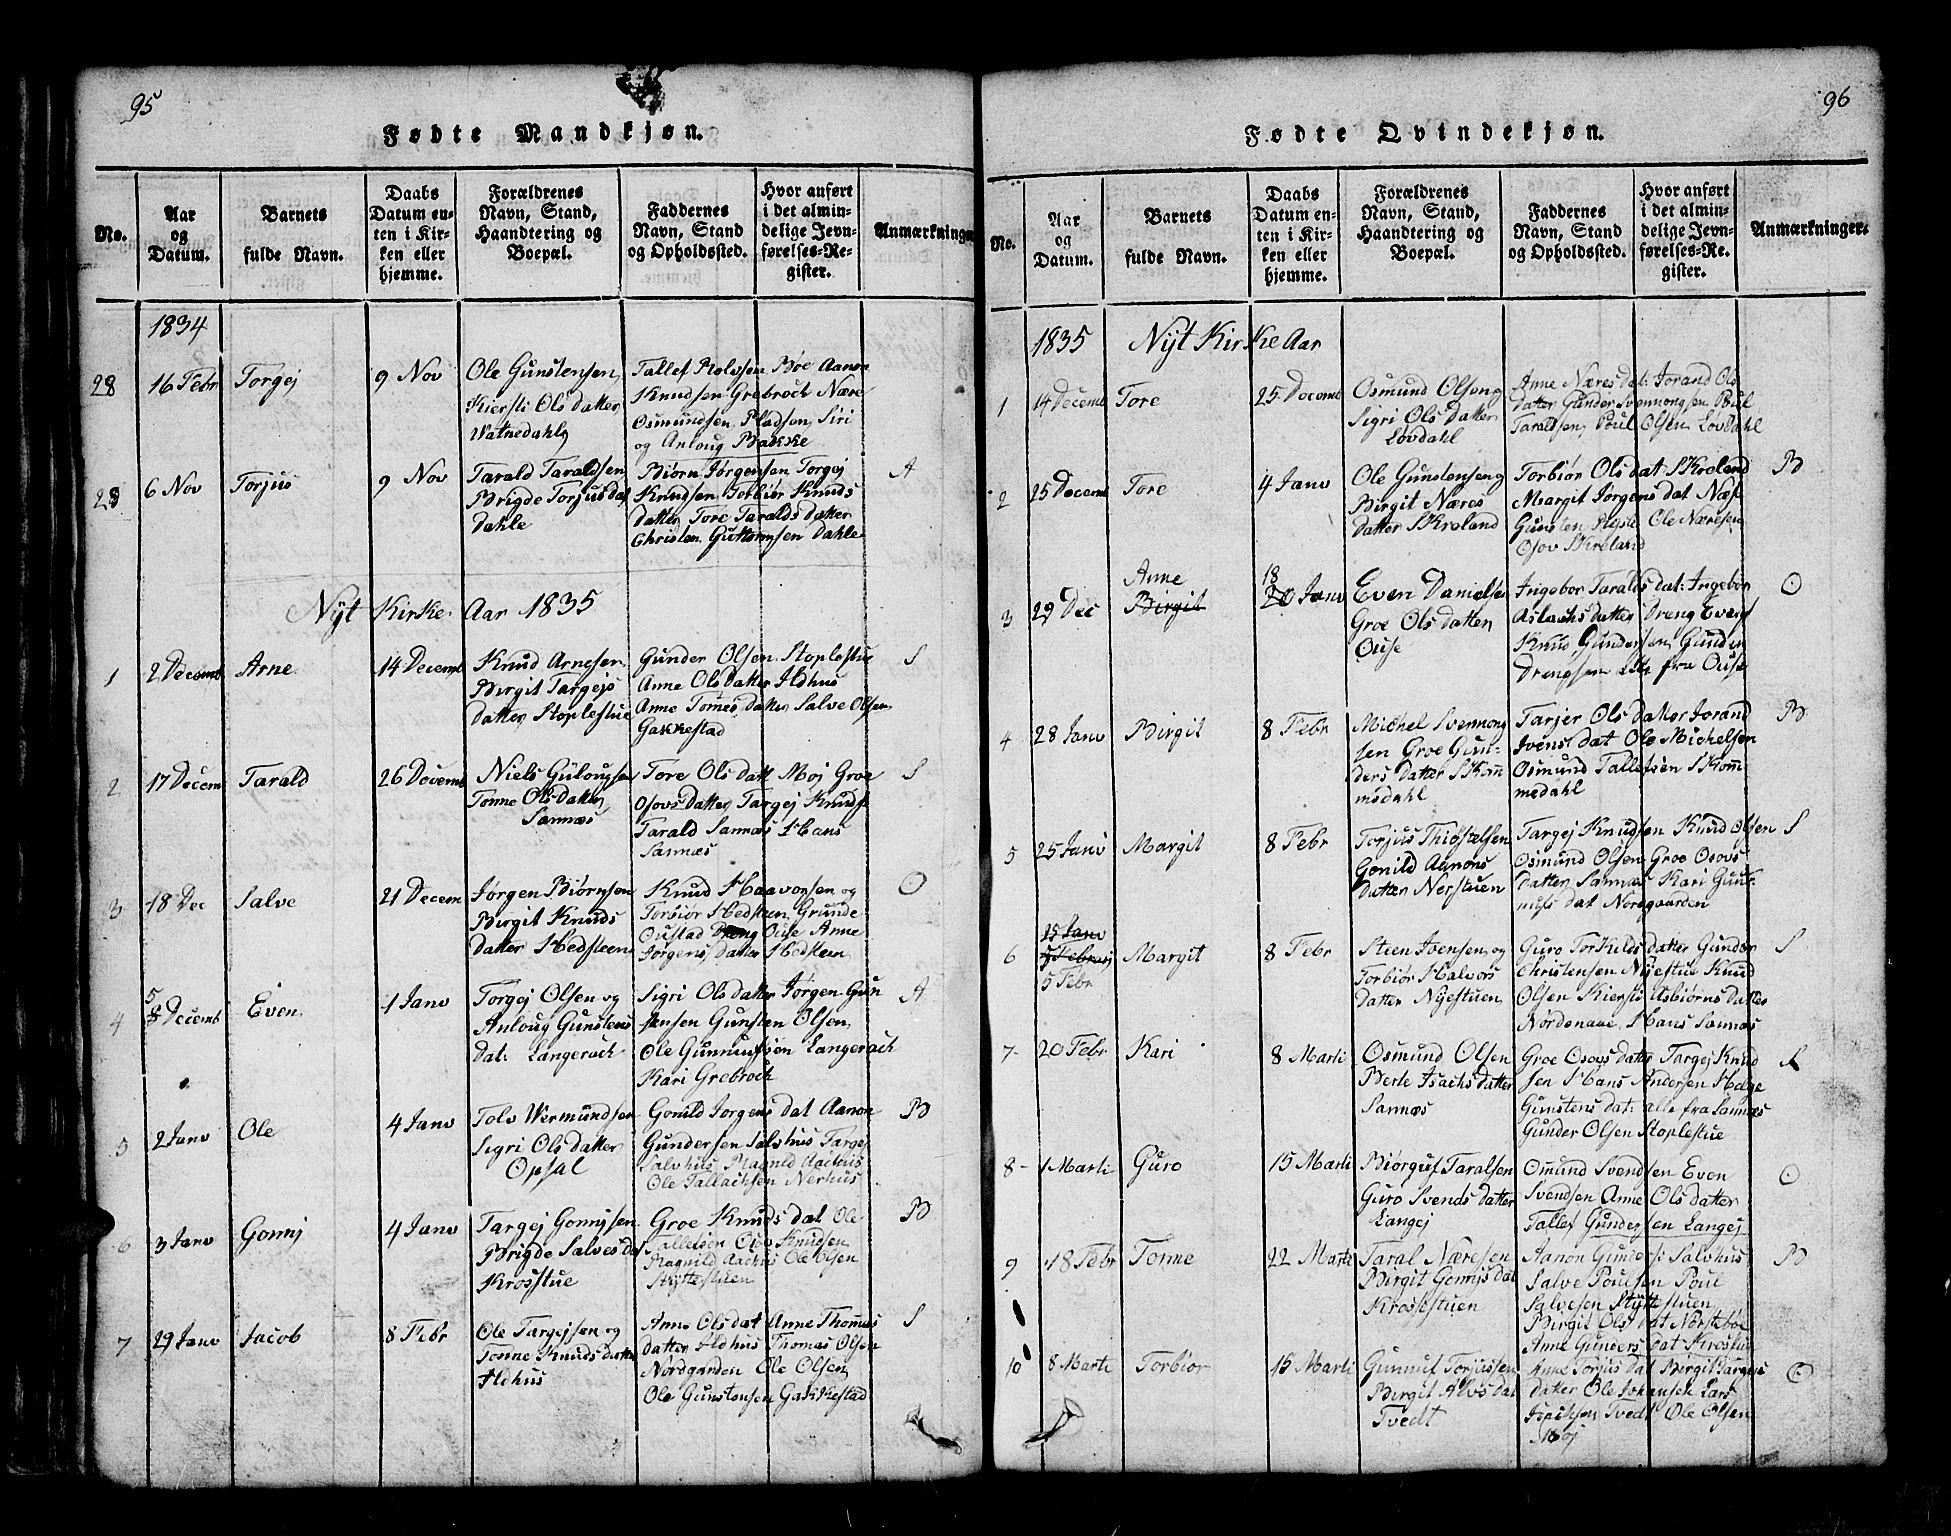 95
Fødte Mandkjøn.
No.
Aar
og
Datum.
Barnets
fulde Navn.
Daabs
Datum en-
ten i Kir-
ken eller
hjemme.
Forældrenes
Navn, Stand,
Haandtering og
Boepæl.
Faddernes
Navn, Stand
og Opholdssted.
Hvor anført
i det almin-
delige Jevn-
førelses-Re-
gister.
Anmærkninger
1834
28
16 Febr
Torgej
9 Nov
Ole Gunstensen
Kiersti Olsdatter
Vatnedahl
Tallef Rolvsen Bøe Aanon
Knudsen Grebrock Nære
Osmundsen Pladsen Siri
og Anloug Bakke
6 Nov
Torjus
9 Nov
Tarald Taraldsen
Brigde Torjusdat
Dahle
Biørn Jørgensen Torgej
Knudsen Torbiør Knuds
datter Tore Taralds datter
Christen Guttormsen Dahle
A
Nyt Kirke Aar 1835
1
2 Decemb
Arne
14 Decemb
Knud Arnesen
Birgit Targejs
datter Stoplestue
Gunder Olsen Stoplestue
Anne Olsdatter Ildhus
Anne Tomesdatter Salve Olsen
Gakkestad
S
2
17 Decem
Tarald
26 Decemb
Niels Gulougsen
Tonne Olsdatter
Sannæs
Tore Olsdatt Moj Groe
Osovsdatter Targej Knuds
Tarald Sannæs Hans
Sannæs
S
3
18 Dec
Salve
21 Decem
Jørgen Biørnsen
Birgit Knuds
datter Hedsteen
Knud Haavorsen og
Torbiør Hedsteen Grunde
Oustad Dreng Ouse Anne
Jørgens datter Hedsteen
O
4
5
8 Decemb
Even
1 Janv
Torgej Olsen og
Anloug Gunstens
dat: Langerach
Sigri Olsdatter Jørgen Gun
stensen Gunsten Olsen
Ole Gunnufsen Langerach
Kari Grebrock
A
5
2 Janv
Ole
4 Janv
Tolv Wermundsen
Sigri Olsdatter
Opsal
Gonild Jorgens dat Aanon
Gundersen Salvhus Targej
Salvhus Magnild Aakhus
Ole Tallachsen Nerhus
B
6
3 Janv
Gomij
4 Janv
Targej Gomijsen
Brigde Salvesdat
Krosstue
Groe Knuds dat Ole
Tallefsen Osov Knudsen
Magnild Aakhus Ole Olsen
Støttestuen
B
7
29 Janv
Jacob
8 Febr
Ole Targejsen og
Tonne Knuds datter
Ildhus
Anne Olsdat Anne Thomæs
datter Ildhus Thomas Olsen
Nordgarden Ole Olsen
Ole Gunstensen Gakkestad
S
96
Fødte Qvindekjøn.
No.
Aar
og
Datum.
Barnets
fulde Navn.
Daabs
Datum en-
ten i Kir-
ken eller
hjemme.
Forældrenes
Navn, Stand,
Haandtering og
Boepæl.
Faddernes
Navn, Stand
og Opholdssted.
Hvor anført
i det almin-
delige Jevn-
førelses-Re-
gister.
Anmærkninger.
1835 Nyt Kirke Aar
1
14 Decemb
Tore
25 Decemb
Osmund Olsen og
Sigri Olsdatter
Lovdahl
Anne Næres dat: Jorand Ols
datter Gunder Svennongsen Poul
Taraldsen Poul Olsen Lovdahl
2
25 Decemb
Tore
4 Janv
Ole Gunstensen og
Birgit Næres
datter Skreland
Torbiør Olsdat: Skreland
Margit Jorgens dat Næse
Gunsten Ole Næresen
Osov Skreland
B
3
29 Dec
Anne
Birgit
18
20 Janv
Even Danielsen
Groe Olsdatter
Ouse
Ingebor Taralds dat: Ingebor
Aslachs datter Dreng Evens
Knud Gundersen Gunder
Drengsen alle fra Ouse
O
4
28 Janv
Birgit
8 Febr
Michel Svennong
sen Groe Gun-
ders datter Skom
medahl
Tarjer Olsdatter Jorand
Ivens dat Ole Michelsen
Osmund Tallefsen Skom
medahl
B
5
25 Janv
Margit
8 Febr
Torjus Thiøstelsen
Gonild Aanons
datter Nerstuen
Targej Knudsen Knud Olsen
Osmund Olsen Groe Osovs
datter Sannæs Kari Gun-
nufs dat Noregaarden
S
6
15 Janv
5 Febr
Margit
8 Febr
Steen Ivensen og
Torbiør Halvors
datter Nyestuen
Guro Torkilds datter Gunder
Christensen Nyestue Knud
Olsen Kiersti Asbiørns datter
Nordenaae Hans Sannæs
S
7
20 Febr
Kari
8 Marti
Osmund Olsen
Berte Isachs datter
Sannæs
Groe Osovs datter Targej Knud
sen Hans Andersen Helge
Gunstens dat: alle fra Sannæs
Gunder Olsen Stoplestue
8
1 Marti
Guro
15 Marti
Biørguf Taralsen
Guro Svends datter
Langej
Osmund Svendsen Even
Svendsen Anne Olsdatter
Tallef Gundersen Langej
O
9
18 Febr
Tonne
22 Marti
Taral Næresen
Birgit Gomijs dat
Krossestuen
Aanon Gunders: Salvhus
Salve Poulsen Poul
Salvesen Støttestuen
Birgit Ols dat Nørstebøe
Anne Gunders dat Krosstue
B
10
8 Marti
Torbiør
15 Marti
Gunnuf Torjussen
Birgit Alvs dat
Tvedt
Anne Torjus dat Birgit Targejs
datter Ole Johansen Lars
Isachsen Tvedt Ole Olsen
Moj
O